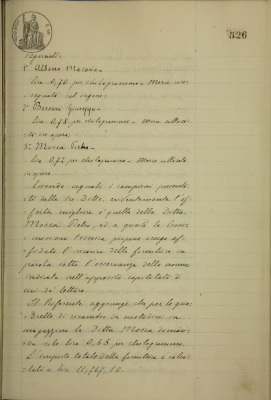 526
seguenti:
1° Albino Macario -
Lire 0,70 per chilogramma - Merce con-
segnata sul vagone.
2° Bersani Giuseppe -
Lire 0,78 per chilogramma - Merce colloca-
ta in opera.
3° Mosca Pietro -
Lire 0,72 per chilogramma - Merce collocata
in opera.
Essendo eguali i campioni presenta-
ti dalle tre Ditte, evidentemente l'of-
ferta migliore è quella della Ditta
Mosca Pietro, ed a questa la Com-
missione
fidato l'incarico della fornitura in
parola sotto l'osservanza delle norme
indicate nell'apposito capitolato di
cui da lettera.
Il Referente aggiunge che per le gua-
rnelle di ricambio da mettere in
magazzino la Ditta Mosca doman-
da solo lire 0,65 per chilogramma.
L'importo totale della fornitura è calco-
lato a lire